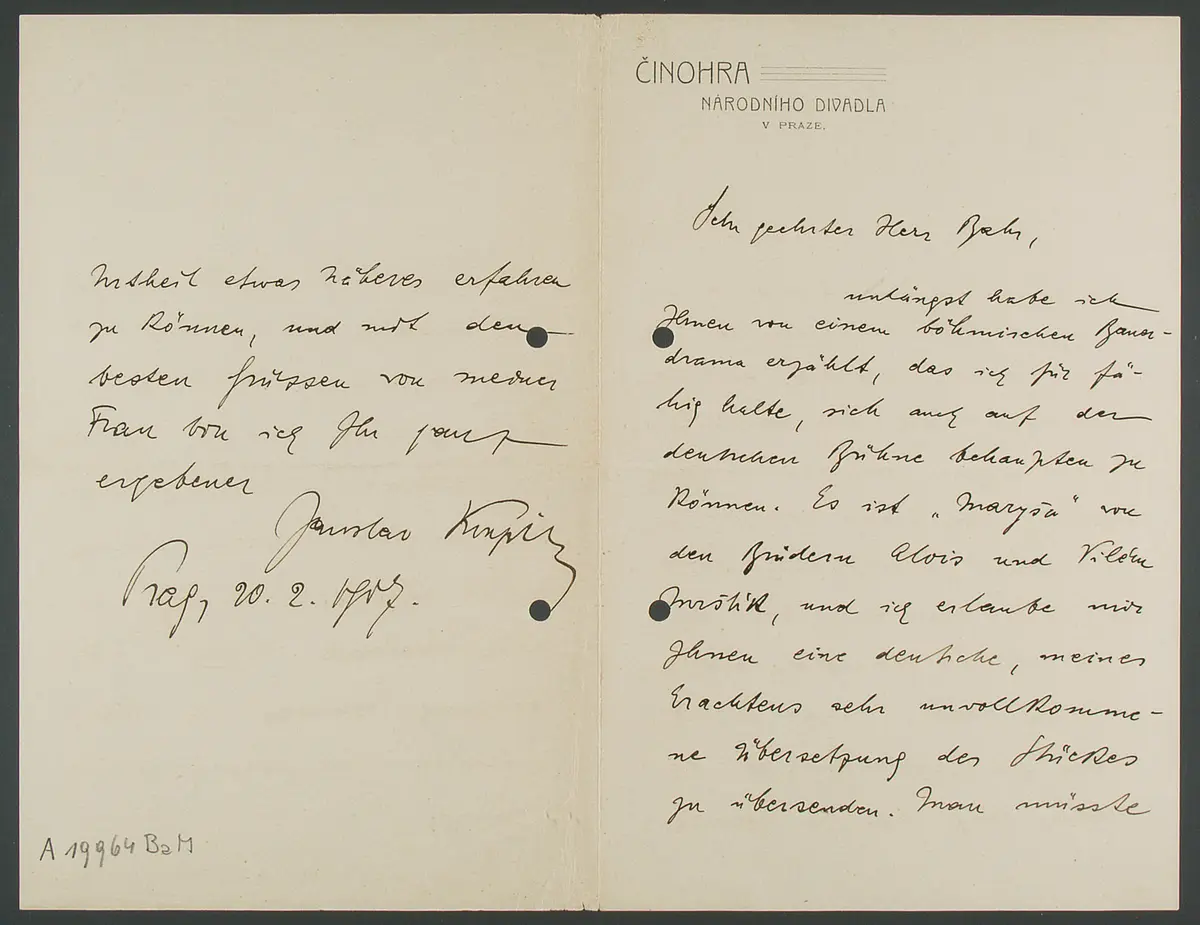 ČINOHRA
NÁRODNÍHO DIVADLA
V PRAZE.
Sehr geehrter Herr Bahr,
unlängst habe ich
Ihnen von einem böhmischen Bauern-
drama erzählt, das ich für fä-
hig halte, sich auch auf der
deutschen Bühne behaupten zu
können. Es ist „Maryša“ von
den Brüdern Alois und Vilém
Mrštík, und ich erlaube mir
Ihnen eine deutsche, meines
Erachtens sehr unvollkomme-
ne Übersetzung des Stückes
zu übersenden. Man müsste
Urtheil etwas Näheres erfahren
zu können, und mit den
besten Grüssen von meiner
Frau bin ich Ihr ganz
ergebener
Jaroslav Kvapil
Prag, 20. 2. 1907.
A 19964 BaM